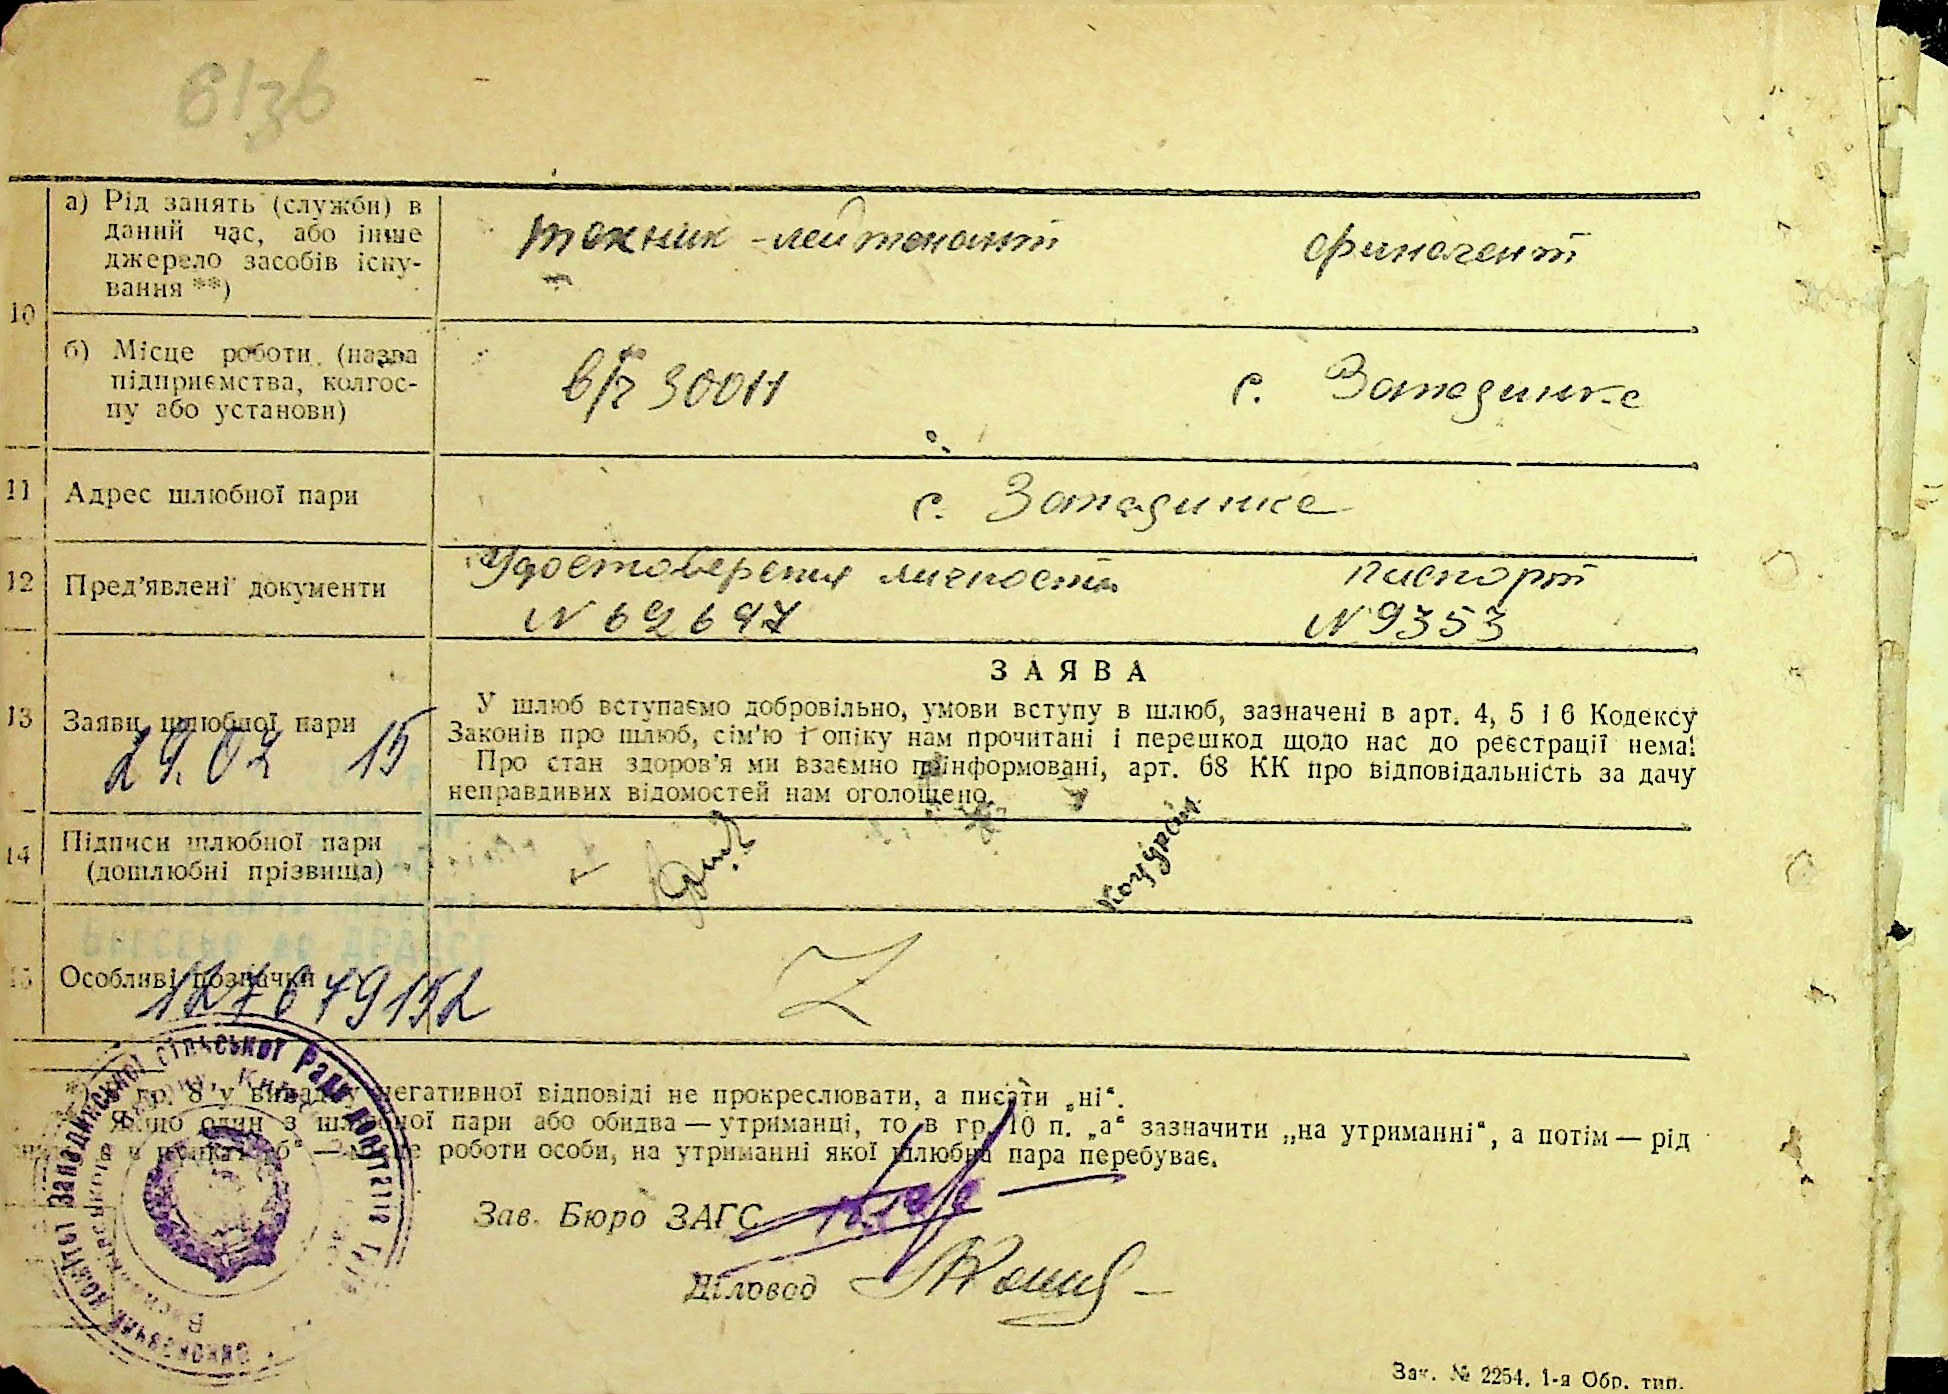 а) Рід занять (служби) в
даний час, або інше
джерело засобів існу-
вання **)
техник-лейтенант
финагент
10
б) Місце роботи (назва
підприємства, колгос-
пу або установи)
в/ч 30011
с. Западинке
11 Адрес шлюбної пари
с. Западинке
12 Пред'явлені документи
Удостоверения личности
N 69697
паспорт
N 9353
ЗАЯВА
13 Заяви шлюбної пари
29.02 15
У шлюб вступаємо добровільно, умови вступу в шлюб, зазначені в арт. 4, 5 і 6 Кодексу
Законів про шлюб, сім'ю і опіку нам прочитані і перешкод щодо нас до реєстрації нема!
Про стан здоров'я ми взаємно поінформовані, арт. 68 КК про відповідальність за дачу
неправдивих відомостей нам оголошено.
14 Підписи шлюбної пари
(дошлюбні прізвища)
15 Особливі позначки
Z
*) в гр. 8 у випадку негативної відповіді не прокреслювати, а писати „ні“.
Якщо один з шлюбної пари або обидва — утриманці, то в гр. 10 п. „а“ зазначити „на утриманні“, а потім — рід
роботи особи, на утриманні якої шлюбна пара перебуває.
Зав. Бюро ЗАГС
Діловод
Виконавчий комітет Западинської сільської Ради депутатів
Зак. № 2254. 1-я Обр. тип.